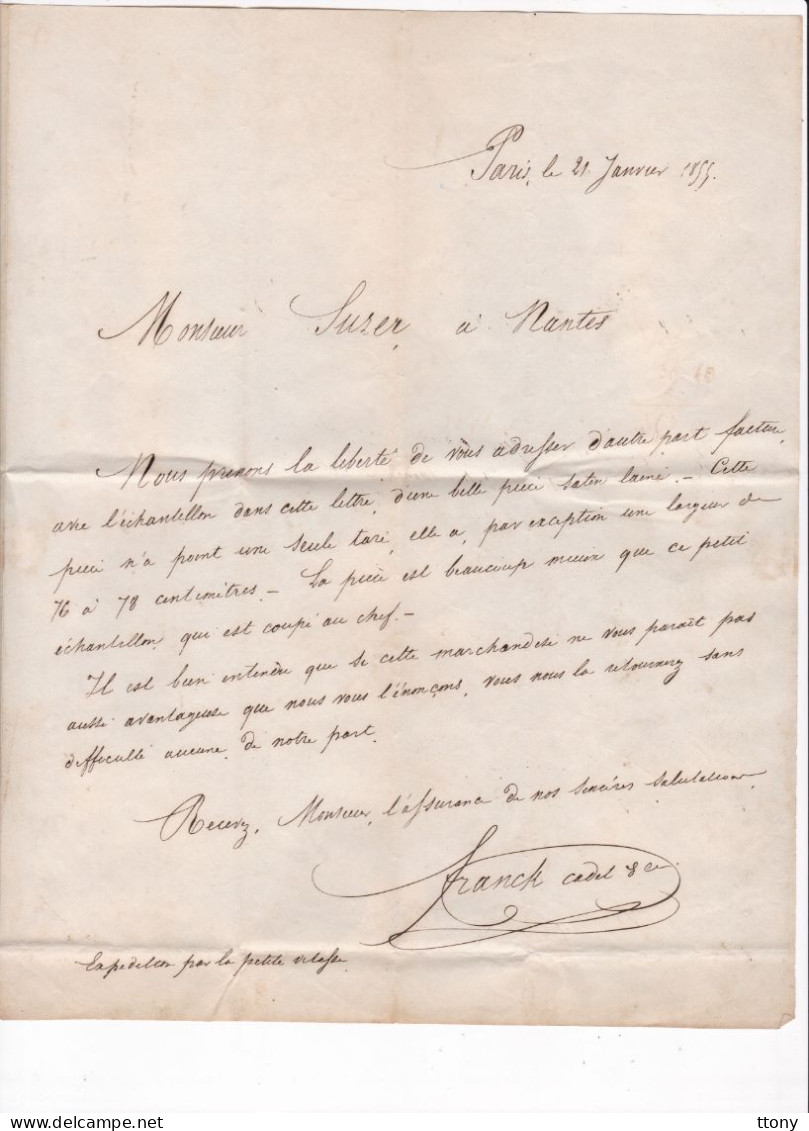 Paris, le 21 Janvier 1855.
Monsieur Suzer à Nantes
Nous prenons la liberté de vous adresser d'autre part facture
avec l'échantillon dans cette lettre, d'une belle pièce satin laine. – Cette
pièce n'a point une seule tare, elle a, par exception une largeur de
76 à 78 centimètres. – La pièce est beaucoup mieux que ce petit
échantillon, qui est coupé au chef. –
Il est bien entendre que si cette marchandise ne vous paraît pas
aussi avantageuse que nous vous l'énonçons, vous nous la retournerez sans
difficulté aucune de notre part.
Recevez, Monsieur, l'assurance de nos sincères salutations
Franck cadet & Cie.
Expédition par la petite vitesse
ttony